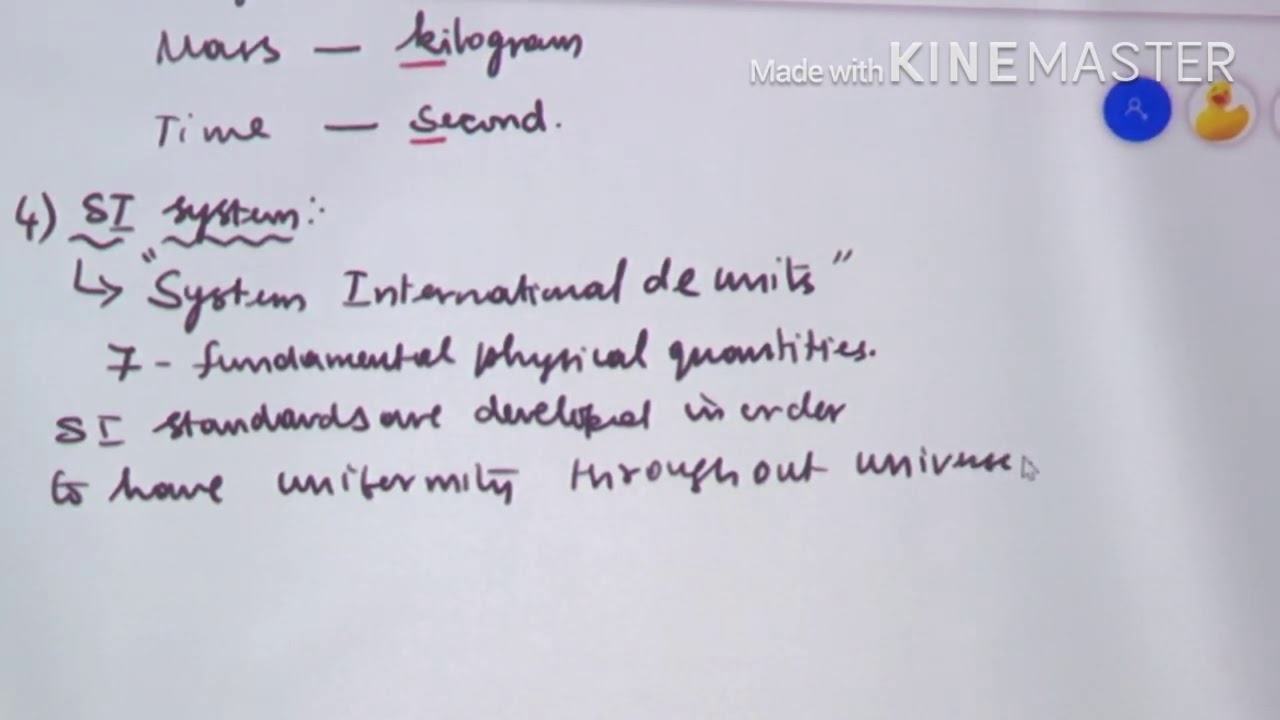 Mass — kilogram
Made with KINEMASTER
Time — second.
4) SI system:
↳ "System International de units"
7 - fundamental physical quantities.
SI standards are developed in order
to have uniformity throughout universe